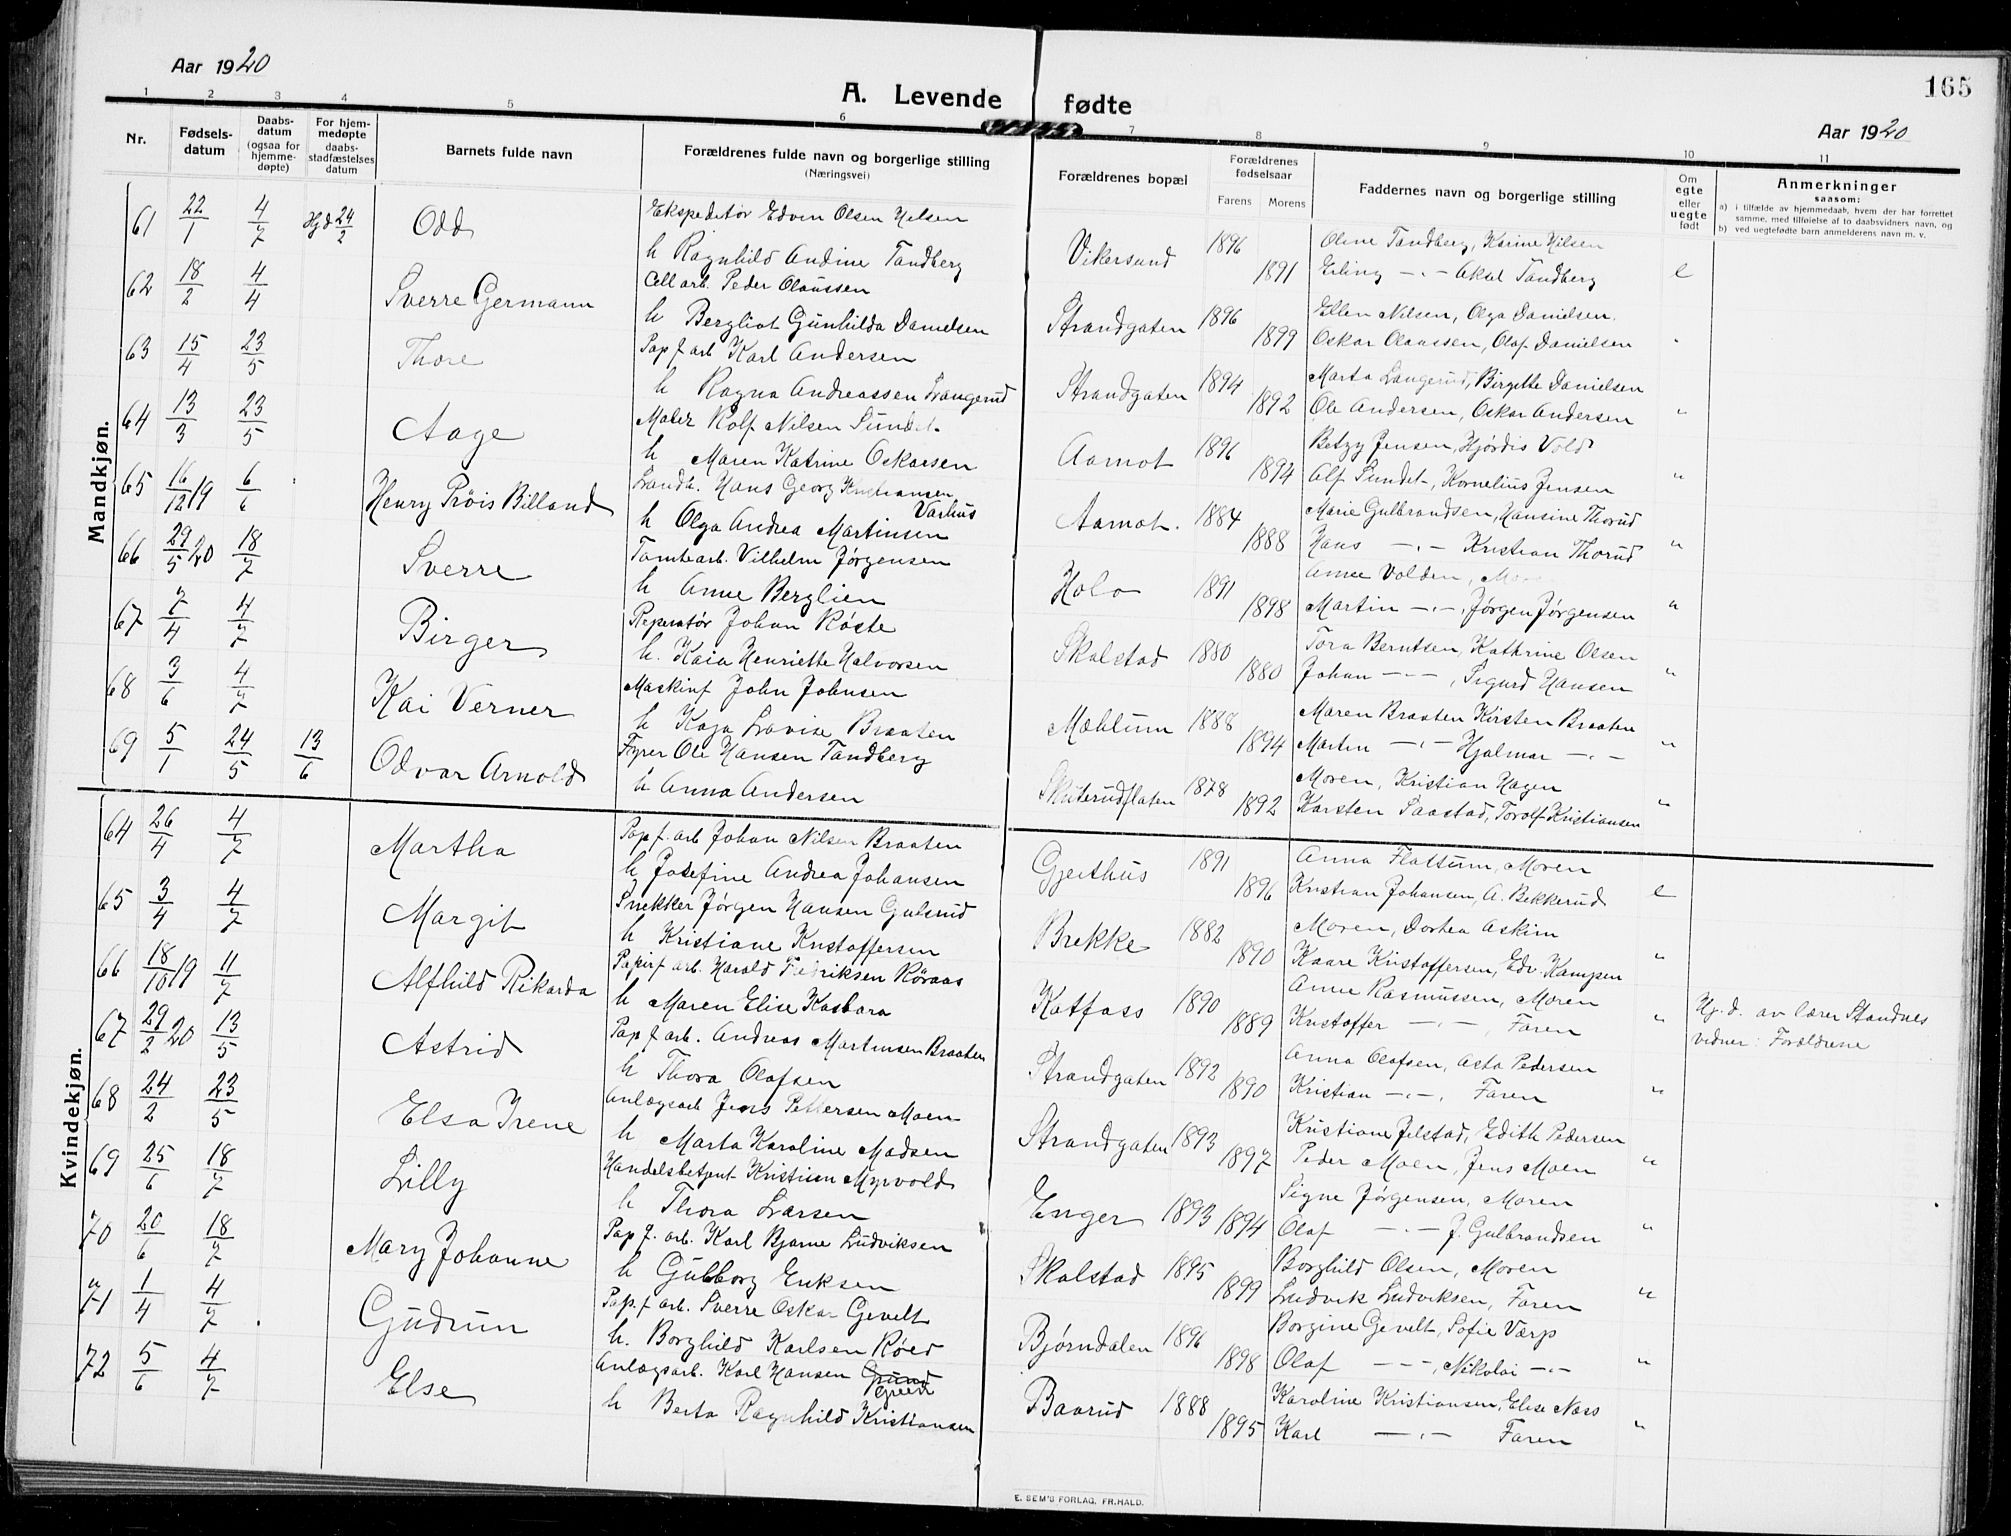 Aar 1920
A. Levende fødte
165
Aar 1920
1 2 3 4 5 6 7 8 9 10 11
Nr.
Fødsels-
datum
Daabs-
datum
(ogsaa for
hjemme-
døpte)
For hjem-
medøpte
daabs-
stadfæstelses
datum
Barnets fulde navn
Forældrenes fulde navn og borgerlige stilling
(Næringsvei)
Forældrenes bopæl
Forældrenes
fødselsaar
Farens Morens
Faddernes navn og borgerlige stilling
Om
egte
eller
uegte
født
Anmerkninger
saasom:
a) i tilfælde av hjemmedaab, hvem der har forrettet
samme, med tilføielse af to daabsvidners navn, og
b) ved uegtefødte barn anmelderens navn m. v.
Mandkjøn.
61 22/1 4/7 Hjd 24/2 Odd Ekspeditør Edvin Olsen Nelsen
h Ragnhild Andine Tandberg
Vikersund 1896 1891
Oline Tandberg, Karine Nilsen
Erling -"- Aksel Tandberg e
62 18/2 4/4 Sverre Germann Cell arb. Peder Olaussen
h Bergliot Gunhilda Danielsen
Strandgaten 1896 1899
Ellen Nilsen, Olga Danielsen.
Oskar Olaussen, Olaf Danielsen "
63 15/4 23/5 Thore Pap f arb Karl Andersen
h Ragna Andreassen Langerud
Strandgaten 1894 1892
Marta Langerud, Birgitte Danielsen
Ole Andersen, Oskar Andersen "
64 13/3 23/5 Aage Maler Rolf Nilsen Sundet.
h Maren Katrine Oskarsen
Aamot 1896 1894
Betzy Jensen, Hjørdis Vold
Alf Sundet, Kornelius Jensen "
65 16/12 19 6/6 Henry Prøis Billand Landh. Hans Georg Kristiansen
Varhus
h Olga Andrea Martinsen
Aamot. 1884 1888
Marie Gulbrandsen, Hansine Thorud
Hans -"- Kristian Thorud "
66 29/5 20 18/7 Sverre Tomtearb. Vilhelm Jørgensen
h Anne Berglien
Holo 1891 1898
Anne Volden,
Martin -"-, Jørgen Jørgensen "
67 7/4 4/7 Birger Reperatør Johan Røste
h. Kaia Henriette Halvorsen
Skalstad 1880 1880
Tora Berntsen, Kathrine Olsen
Johan -"-, Sigurd Hansen "
68 3/6 4/7 Kai Verner Maskinf John Johnsen
h Kaja Lovise Braaten
Mæhlum 1888 1894
Maren Braaten Kirsten Braaten
Martin -"- Hjalmar -"- "
69 5/1 24/5 13/6 Odvar Arnold Fyrer Ole Hansen Tandberg
h Anna Andersen
Skuterudflaten 1878 1892
Moren, Kristian Hagen
Karsten Saastad, Torolf Kristiansen "
Kvindekjøn.
64 26/4 4/7 Martha Pap f. arb Johan Nilsen Braaten
h Josefine Andrea Johansen
Gjeithus 1891 1896
Anna Flattum, Moren
Kristian Johansen, A. Bekkerud e
65 3/4 4/7 Margit Snekker Jørgen Hansen Gulsrud
h Kristiane Kristoffersen
Brekke 1882 1890
Moren, Dorthea Askim
Kaare Kristoffersen, Edv. Kampen "
66 18/10 19 11/7 Alfhild Rikarda Papirf arb. Harald Fredriksen Røraas
h Maren Elise Kasbara
Katfoss 1890 1889
Anne Rasmussen, Moren
Kristoffer -"-, Faren "
Hj. d. av lærer Standnes
vidner: Forældrene
67 29/2 20 13/5 Astrid Pap f arb. Andreas Martinsen Braaten
h Thora Olafsen
Strandgaten 1892 1890
Anna Olafsen, Asta Pedersen
Kristian -"-, Faren "
68 24/2 23/5 Elsa Irene Anlægsarb Jens Pettersen Moen
h Marta Karoline Madsen
Strandgaten 1893 1897
Kristiane Jelstad, Edith Pedersen
Peder Moen, Jens Moen "
69 25/6 18/7 Lilly Handelsbetjent Kristian Myrvold
h Thora Larsen
Enger 1893 1894
Signe Jørgensen, Moren
Olaf -"- J. Gulbrandsen "
70 20/6 18/7 Mary Johanne Pap f. arb. Karl Bjarne Ludviksen
h Gulborg Eriksen
Skalstad 1895 1899
Borghild Olsen, Moren
Ludvik Ludviksen, Faren "
71 1/4 4/7 Gudrun Pap. f arb. Sverre Oskar Gevelt
h. Borghild Karlsen Røed
Bjørndalen 1896 1898
Borgine Gevelt, Sofie Værp
Olaf -"-, Nikolai -"- "
72 5/6 4/7 Else Anlægsarb. Karl Hansen
h Berta Ragnhild Kristiansen
Baarud 1888 1895
Karoline Kristiansen, Elise Næss
Karl -"- Faren "
E. SEM'S FORLAG, FR.HALD.